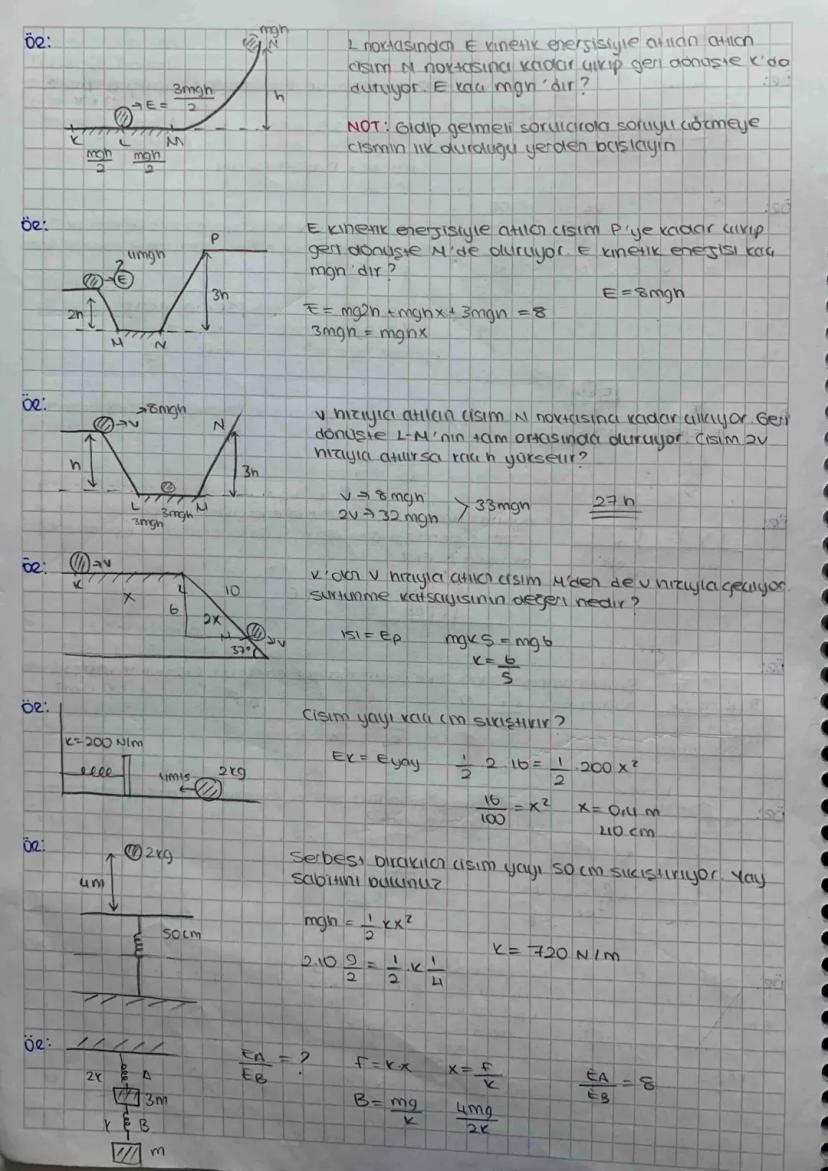 ÖR:
mgh
N
h
E = 3mgh/2
K L M
mgh/2 mgh/2
L noktasından E kinetik enerjisiyle atılan atılan
cisim N noktasına kadar çıkıp geri dönüşte K'da
duruyor. E kaç mgh'dır?
NOT: Gidip gelmeli sorularda soruyu çözmeye
cismin ilk durduğu yerden başlayın
ÖR:
4mgh
E
P
2h
3h
M N
E kinetik enerjisiyle atılan cisim P'ye kadar çıkıp
geri dönüşte M'de duruyor. E kinetik enerjisi kaç
mgh'dır?
E = 8mgh
E = mg2h + mghx + 3mgh = 8
3mgh = mghx
ÖR:
8mgh
v
N
h
3h
L M
3mgh 3mgh
v hızıyla atılan cisim N noktasına kadar çıkıyor. Geri
dönüşte L-M'nin tam ortasında duruyor. Cisim 2v
hızıyla atılırsa kaç h yükselir?
v → 8mgh
2v → 32mgh > 33mgh
27h
ÖR:
v
K
x
L
10
6
2x
M
v
37°
K'dan v hızıyla atılan cisim M'den de v hızıyla geçiyor.
Sürtünme katsayısının değeri nedir?
ısı = Ep mgk5 = mg6
k = 6/5
ÖR:
k=200 N/m
4m/s
2kg
Cisim yayı kaç cm sıkıştırır?
Ek = Eyay 1/2 . 2 . 16 = 1/2 . 200 x²
16/100 = x² x = 0,4 m
40 cm
ÖR:
2kg
4m
50cm
Serbest bırakılan cisim yayı 50 cm sıkıştırıyor. Yay
sabitini bulunuz
mgh = 1/2 kx²
2.10 9/2 = 1/2 . k 1/4
k = 720 N/m
ÖR:
2k A
3m
k B
m
EA/EB = ? F = kx x = F/k
B = mg/k 4mg/2k
EA/EB = 8